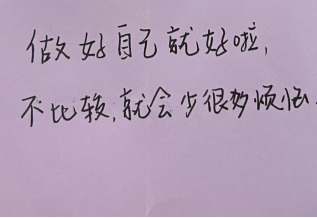 做好自己就好啦,
不比较,就会少很多烦恼.